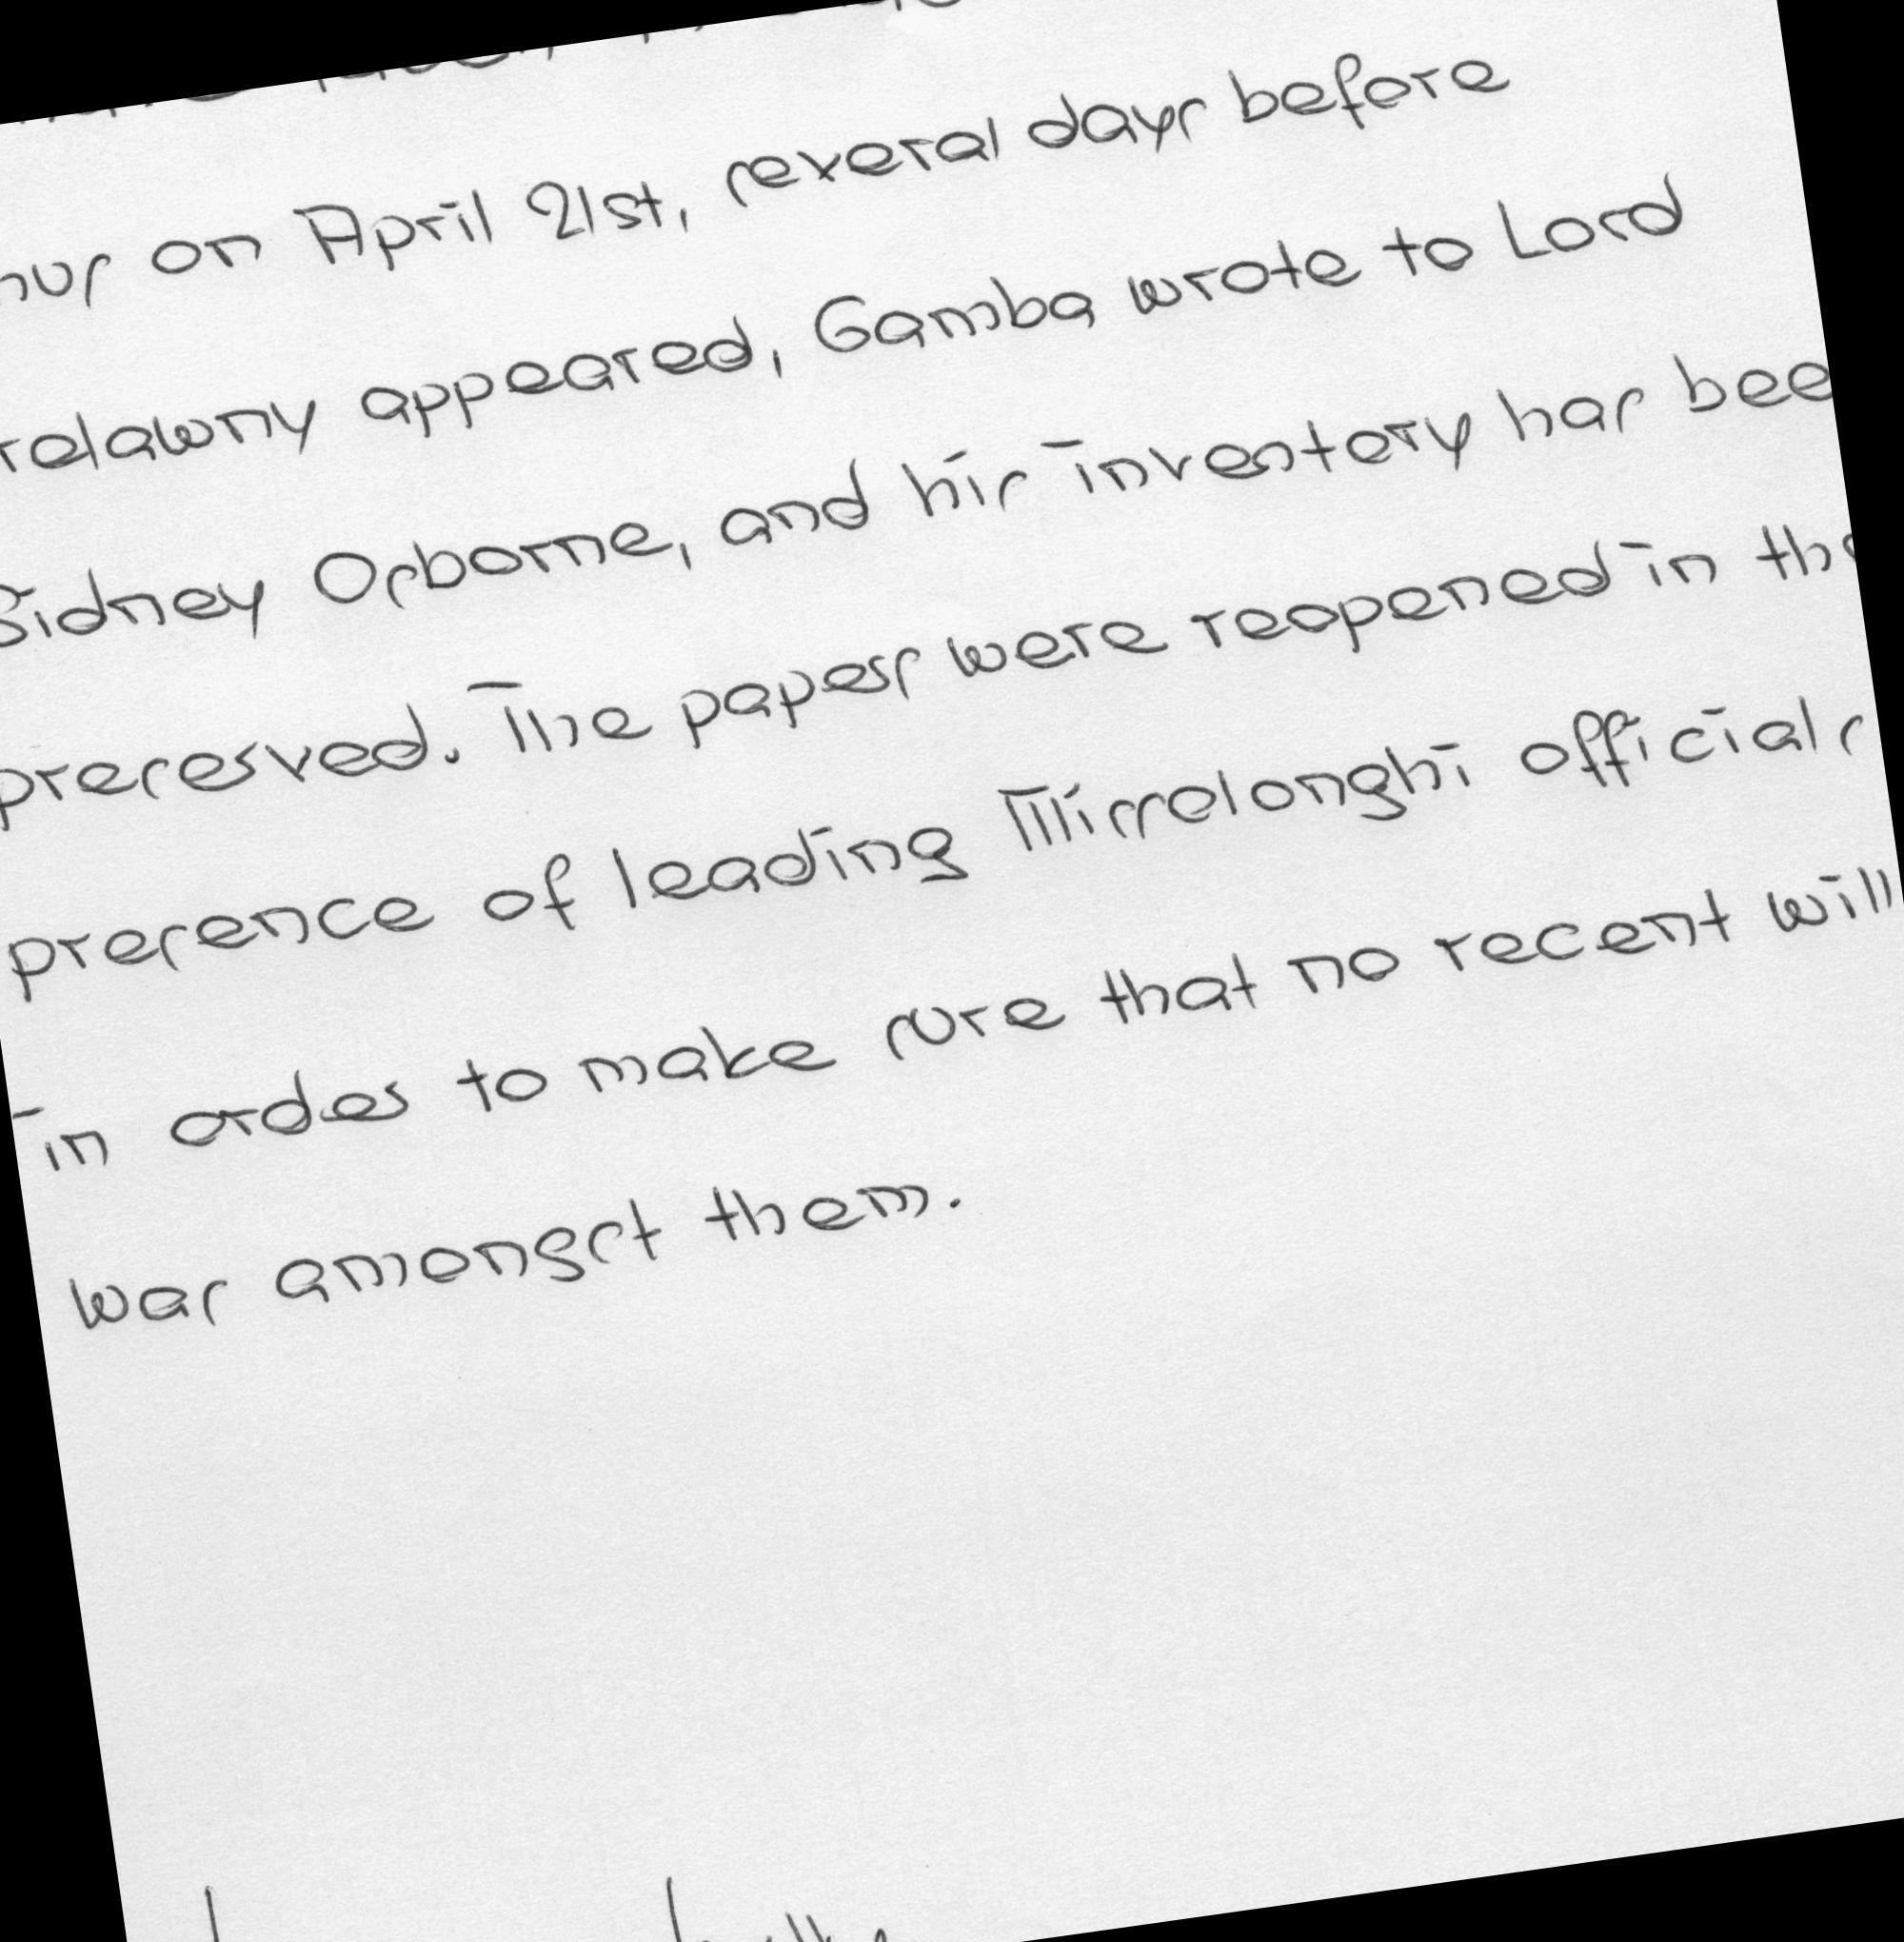 on April 21st, several days before
appeared, Gamba wrote to Lord
Sidney Osborne, and his inventory has
preserved. The papers were reopened in the
presence of leading Missolonghi officials
in order to make sure that no recent will
was amongst them.